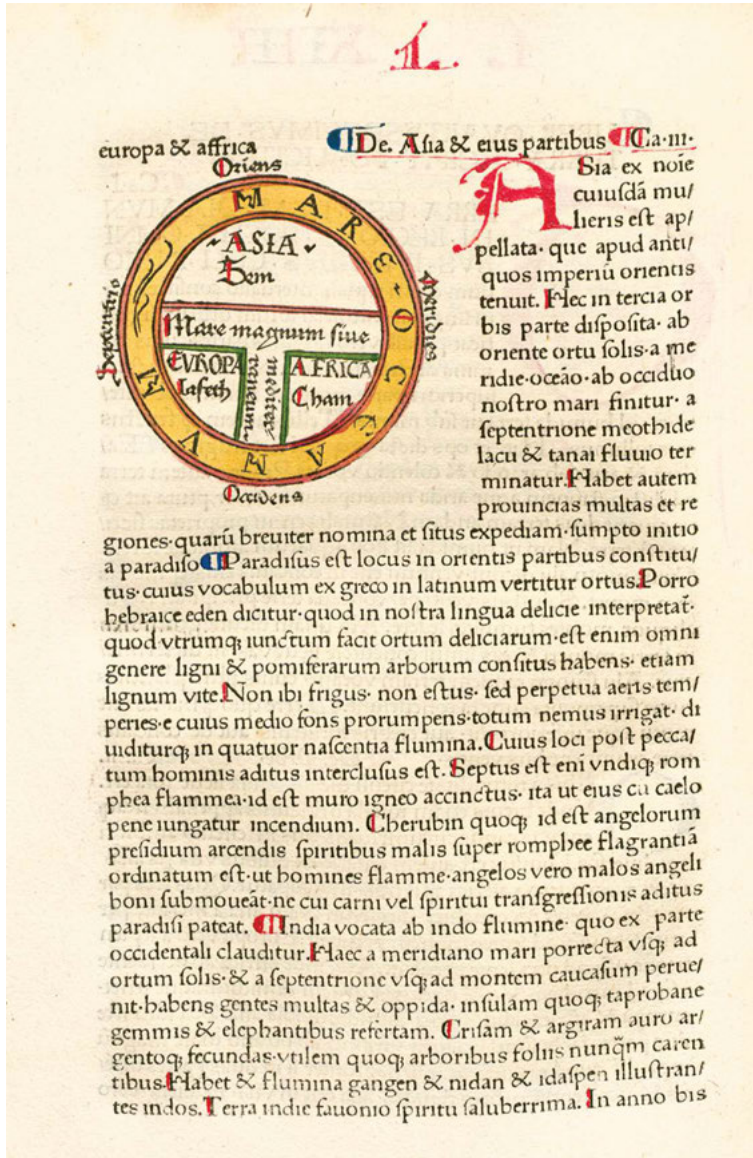 1.
europa & affrica
¶De. Asia & eius partibus ¶Ca·iii·
Oriens
MARE OCEANVM
Septentrio
Meridies
ASIA
Sem
Mare magnum siue
mediterraneum
EVROPA
Iafeth
AFRICA
Cham
Occidens
ASia ex noīe
cuiusdā mu/
lieris est ap/
pellata· que apud anti/
quos imperiū orientis
tenuit. Hec in tercia or
bis parte disposita· ab
oriente ortu solis·a me
ridie·oceāo·ab occiduo
nostro mari finitur· a
septentrione meothide
lacu & tanai fluuio ter
minatur.Habet autem
prouincias multas et re
giones·quarū breuiter nomina et situs expediam·sumpto initio
a paradiso ¶Paradisus est locus in orientis partibus constitu/
tus·cuius vocabulum ex greco in latinum vertitur ortus.Porro
hebraice eden dicitur·quod in nostra lingua delicie interpretat̄·
quod vtrumq; iunctum facit ortum deliciarum·est enim omni
genere ligni & pomiferarum arborum consitus habens· etiam
lignum vite.Non ibi frigus· non estus· sed perpetua aeris tem/
peries·e cuius medio fons prorumpens·totum nemus irrigat· di
uiditurq; in quatuor nascentia flumina.Cuius loci post pecca/
tum hominis aditus interclusus est. Septus est enī vndiq; rom
phea flammea·id est muro igneo accinctus· ita ut eius cū caelo
pene iungatur incendium. Cherubin quoq; id est angelorum
presidium arcendis spiritibus malis super romphee flagrantiā
ordinatum est·ut homines flamme·angelos vero malos angeli
boni submoueāt·ne cui carni vel spiritui transgressionis aditus
paradisi pateat. ¶India vocata ab indo flumine· quo ex parte
occidentali clauditur.Haec a meridiano mari porrecta vsq; ad
ortum solis·& a septentrione vsq; ad montem caucasum perue/
nit·habens gentes multas & oppida· insulam quoq; taprobane
gemmis & elephantibus refertam. Crisam & argiram auro ar/
gentoq; fecundas·vtilem quoq; arboribus foliis nunq̄m caren
tibus.Habet & flumina gangen & nidan & idaspen illustran/
tes indos. Terra indie fauonio spiritu saluberrima. In anno bis